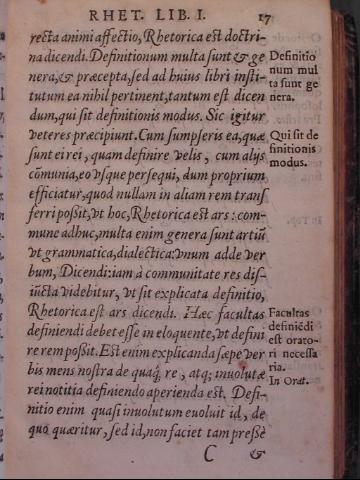 RHET. LIB. I. 17
recta animi affectio, Rhetorica est doctri-
na dicendi. Definitionum multa sunt & ge
nera, & præcepta, sed ad huius libri insti-
tutum ea nihil pertinent, tantum est dicen
dum, qui sit definitionis modus. Sic igitur
veteres præcipiunt. Cum sumpseris ea, quæ
sunt ei rei, quam definire velis, cum alijs
cōmunia, eo vsque persequi, dum proprium
efficiatur, quod nullam in aliam rem trans
ferri possit, vt hoc, Rhetorica est ars: com-
mune adhuc, multa enim genera sunt artiū
vt grammatica, dialectica: vnum adde ver
bum, Dicendi: iam à communitate res dis-
iūcta videbitur, vt sit explicata definitio,
Rhetorica est ars dicendi. Hæc facultas
definiendi debet esse in eloquente, vt defini
re rem possit. Est enim explicanda sæpe ver
bis mens nostra de quaq; re, atq; inuolutæ
rei notitia definiendo aperienda est. Defi-
nitio enim quasi inuolutum euoluit id, de
quo quæritur, sed id, non faciet tam pressè
C &
Definitio
num mul
ta sunt ge
nera.
Qui sit de
finitionis
modus.
Facultas
definiēdi
est orato-
ri necessa
ria.
In Orat.